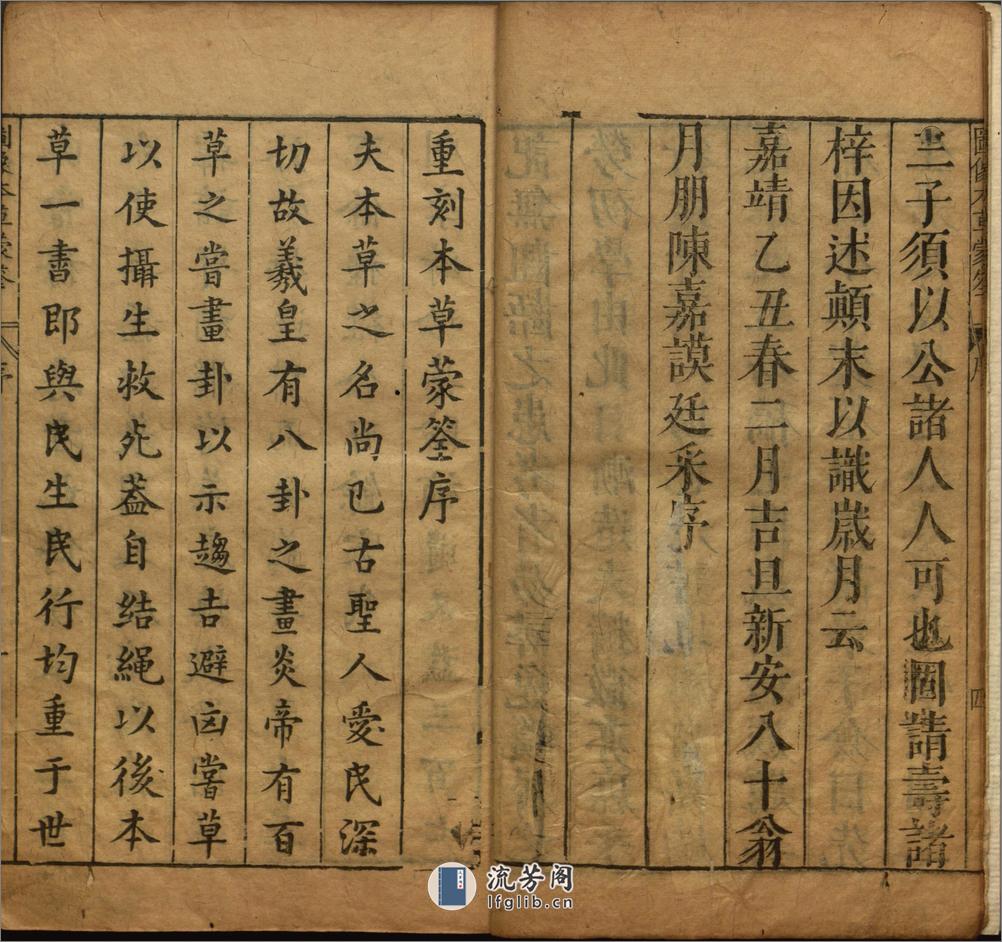 圖像本草蒙筌
序
四
吾二三子須以公諸人人可也固請壽諸
梓因述顛末以識歲月云
嘉靖乙丑春二月吉旦新安八十翁
月朋陳嘉謨廷采序
重刻本草蒙筌序
夫本草之名尚已古聖人愛民深
切故羲皇有八卦之畫炎帝有百
草之嘗畫卦以示趨吉避凶嘗草
以使攝生救死葢自結繩以後本
草一書即與民生民行均重于世
圖像本草蒙筌
序
一
流芳阁
lfglib.cn